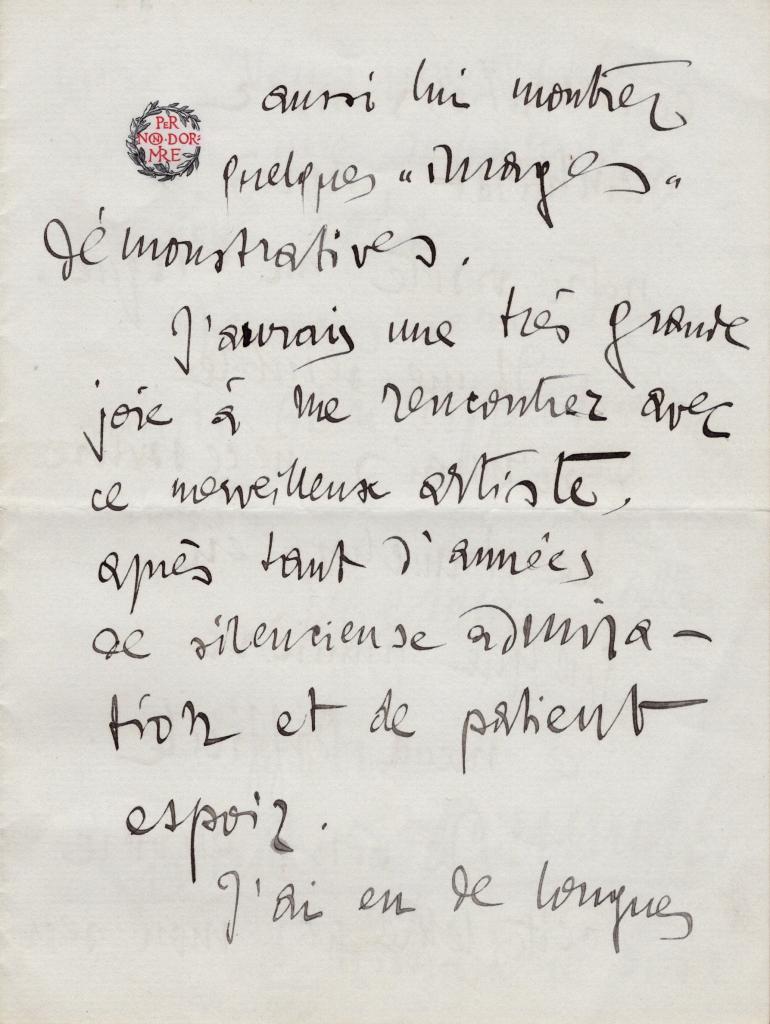 PER
NON·DOR=
MIRE
aussi lui montrer
quelques "images"
démonstratives.
J'aurais une très grande
joie à me rencontrer avec
ce merveilleux artiste,
après tant d'années
de silencieuse admira-
tion et de patient
espoir.
J'ai eu de longues